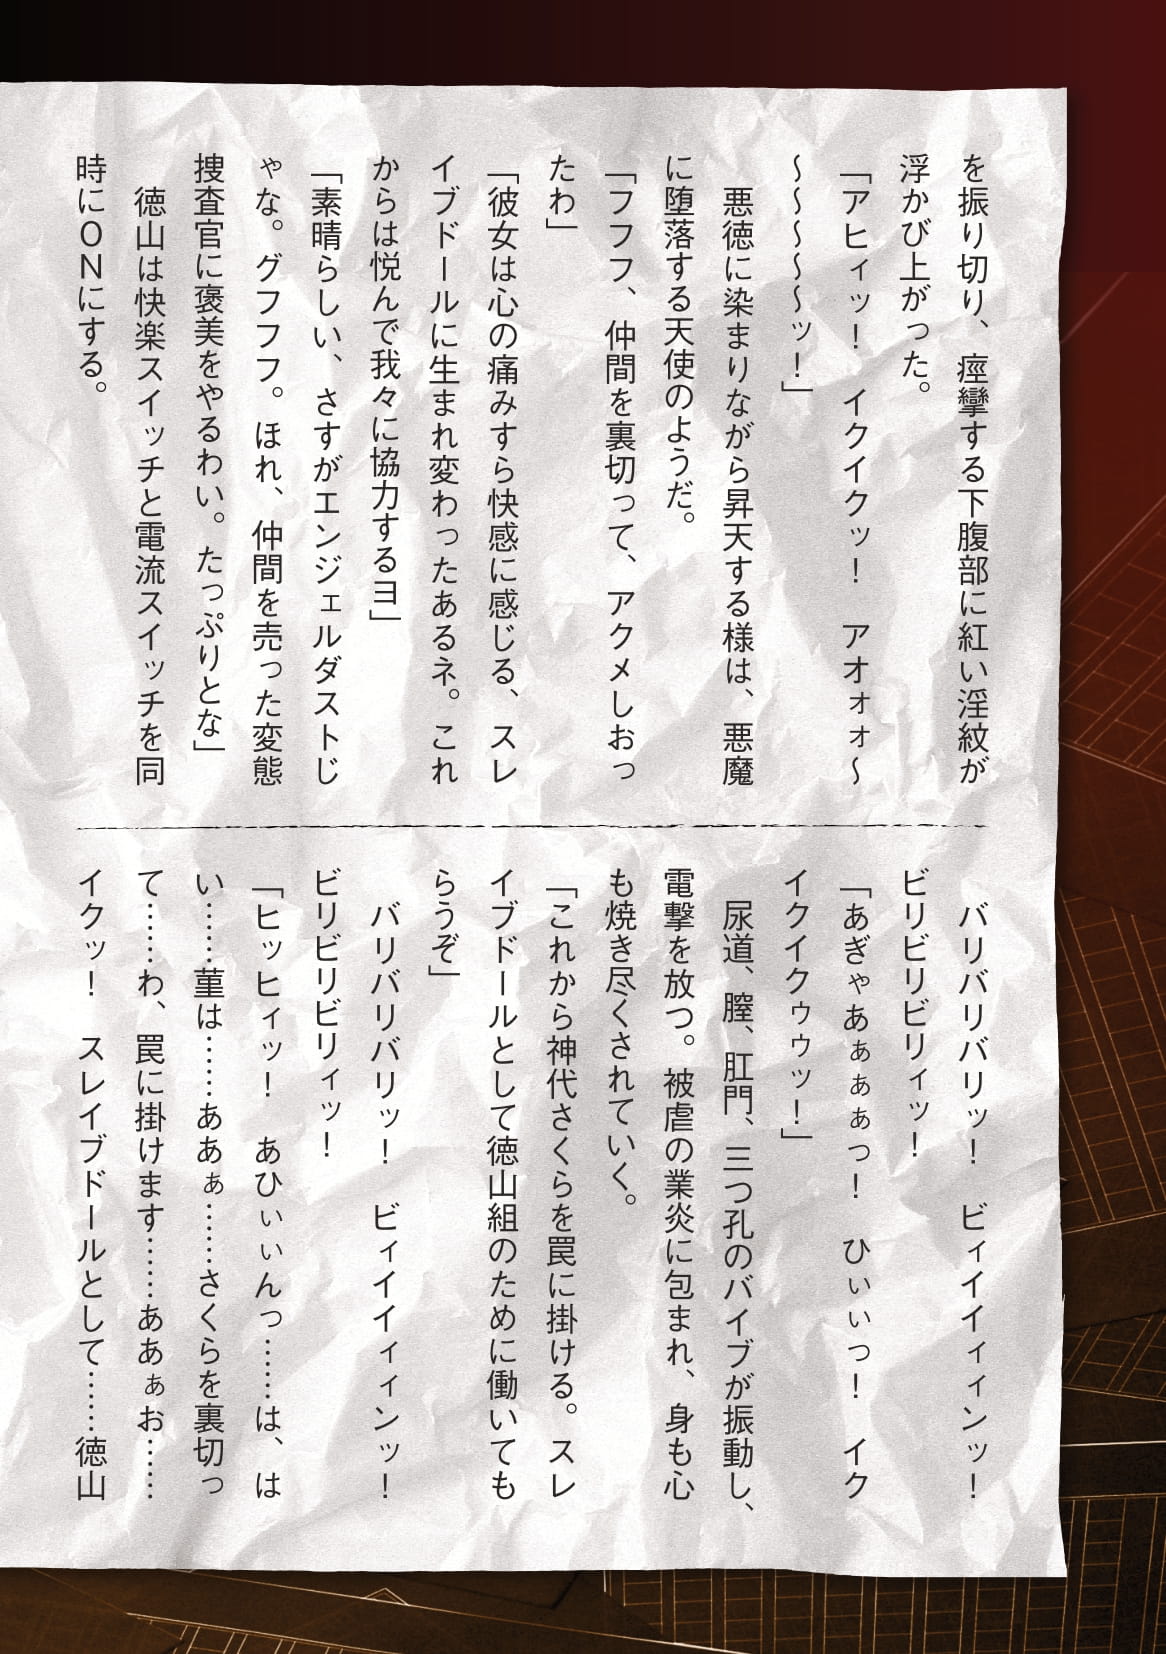 を振り切り、痙攣する下腹部に紅い淫紋が
浮かび上がった。
「アヒィッ！　イクイクッ！　アオォォ～
～～～～～ッ！」
　悪徳に染まりながら昇天する様は、悪魔
に堕落する天使のようだ。
「フフフ、仲間を裏切って、アクメしおっ
たわ」
「彼女は心の痛みすら快感に感じる、スレ
イブドールに生まれ変わったあるネ。これ
からは悦んで我々に協力するヨ」
「素晴らしい、さすがエンジェルダストじ
ゃな。グフフフ。ほれ、仲間を売った変態
捜査官に褒美をやるわい。たっぷりとな」
　徳山は快楽スイッチと電流スイッチを同
時にＯＮにする。
　バリバリバリッ！　ビィイイィィンッ！
ビリビリビリィッ！
「あぎゃあぁぁぁっ！　ひぃぃっ！　イク
イクイクゥゥッ！」
　尿道、膣、肛門、三つ孔のバイブが振動し、
電撃を放つ。被虐の業炎に包まれ、身も心
も焼き尽くされていく。
「これから神代さくらを罠に掛ける。スレ
イブドールとして徳山組のために働いても
らうぞ」
　バリバリバリッ！　ビィイイィィンッ！
ビリビリビリィッ！
「ヒッヒィッ！　あひぃぃんっ……は、は
い……菫は……ああぁ……さくらを裏切っ
て……わ、罠に掛けます……ああぁお……
イクッ！　スレイブドールとして……徳山